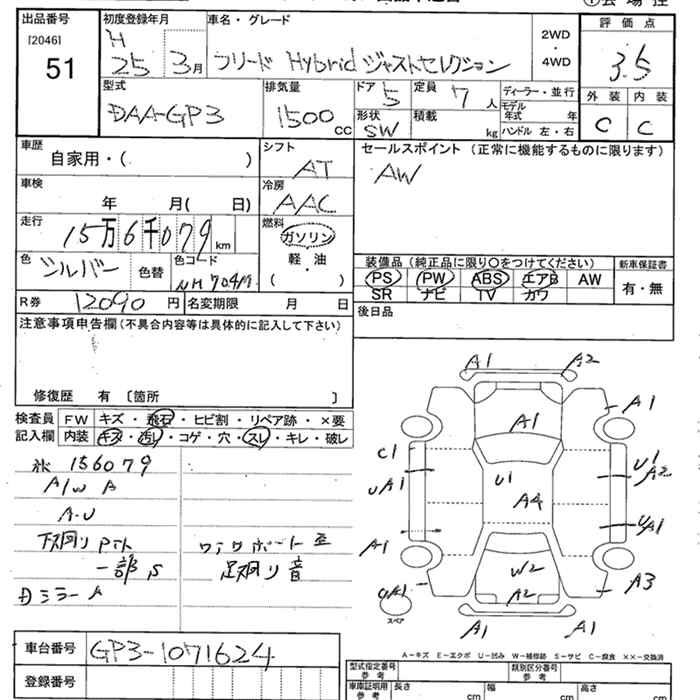 出品番号 初度登録年月 車名・グレード 2WD・4WD 評価点
[2046] 51 H 25 3月 フリード Hybrid ジャストセレクション 3.5
型式 排気量 ドア 5 定員 7人 ディーラー・並行 外装 内装
DAA-GP3 1500cc 形状 SW 積載 kg モデル年式 年 ハンドル 左・右 C C
車歴 自家用・( ) シフト AT セールスポイント(正常に機能するものに限ります)
AW
車検 年 月( 日) 冷房 AAC
走行 15万6千079km 燃料 ガソリン 軽・油 ( )
色 シルバー 色替 色コード NH704M
装備品(純正品に限り○をつけてください) 新車保証書
PS PW ABS エアB AW 有・無
SR ナビ TV カワ
R券 12090円 名変期限 月 日 後日品
注意事項申告欄(不具合内容等は具体的に記入して下さい)
修復歴 有 〔箇所 〕
検査員 FW キズ・飛石・ヒビ割・リペア跡・×要
記入欄 内装 キズ・汚レ・コゲ・穴・スレ・キレ・破レ
156079
A/W A
A・U
下廻り
一部S
ミラーA
足廻り音
A1 A2
A1 A1
C1 U1 U1 A2
UA1 A4 UA1
A1
UA1 W2 A3
A2
スペア A1 A1
A-キズ E-エクボ U-凹み W-補修跡 S-サビ C-腐食 ××-交換済
車台番号 GP3-1071624
登録番号
型式指定番号 参考 類別区分番号 参考
車庫証明用 参考 長さ cm 幅 cm 高さ cm